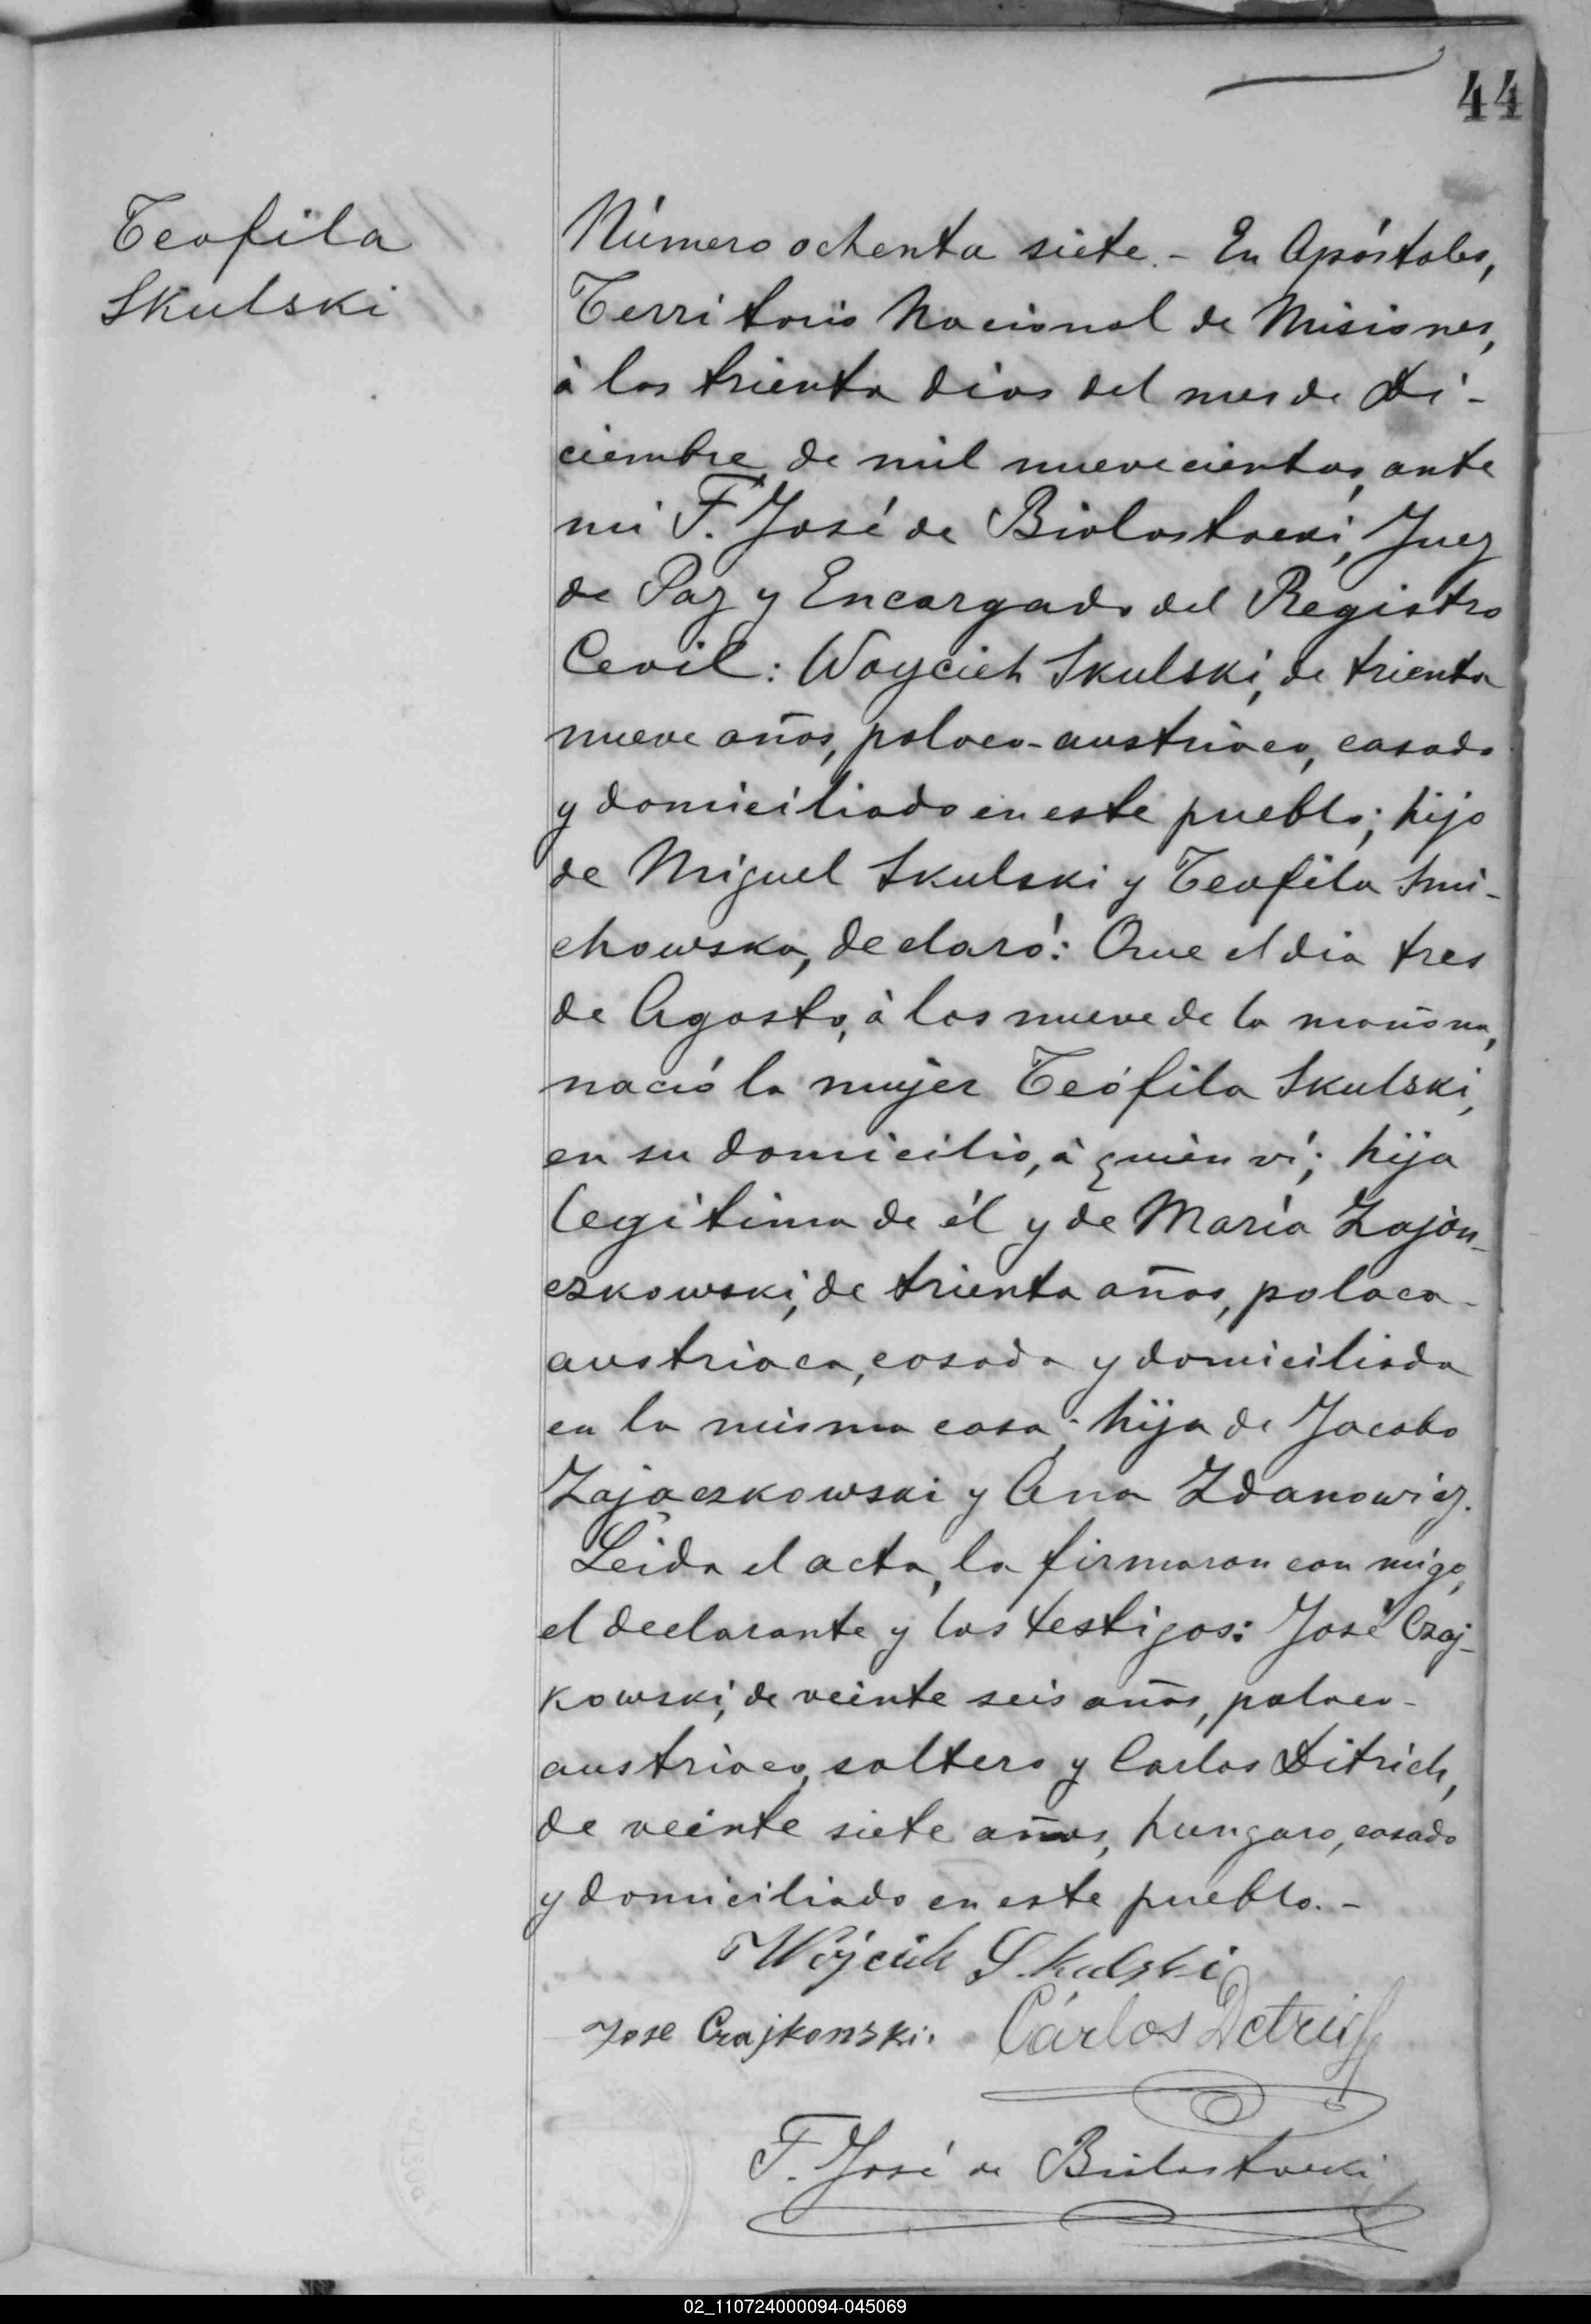 44
Teofila
Skulski
Número ochenta siete.- En Apóstoles,
Territorio Nacional de Misiones,
à los trienta dias del mes de Di-
ciembre de mil nuevecientos, ante
mi F. José de Bialostocki, Juez
de Paz y Encargado del Registro
Cevil: Woycieh Skulski, de trienta
nueve años, polaco-austriaco, casado
y domiciliado en este pueblo; hijo
de Miguel Skulski y Teofila Smi-
chowska, declaró: Que el dia tres
de Agosto, à las nueve de la mañana,
nació la mujer Teófila Skulski,
en su domicilio, à quièn ví; hija
legitima de él y de María Zajòn-
czkowski, de trienta años, polaca-
austriaca, casada y domiciliada
en la misma casa; hija de Jacobo
Zajaczkowski y Ana Zdanowicz.
Leida el acta, la firmaron con migo,
el declarante y los testigos: José Czaj-
kowski, de veinte seis años, polaco-
austriaco, soltero y Carlos Ditrich,
de veinte siete años, hungaro, casado
y domiciliado en este pueblo.-
Wojcieh Skulski
Jose Czajkowski. Cárlos Detrich
F. José de Bialostocki
02_110724000094-045069